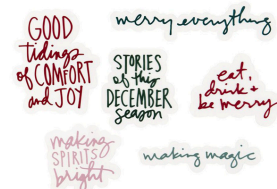 GOOD
tidings
of COMFORT
and JOY
merry everything
STORIES
of this
DECEMBER
season
eat,
drink +
be merry
making
SPIRITS
bright
making magic